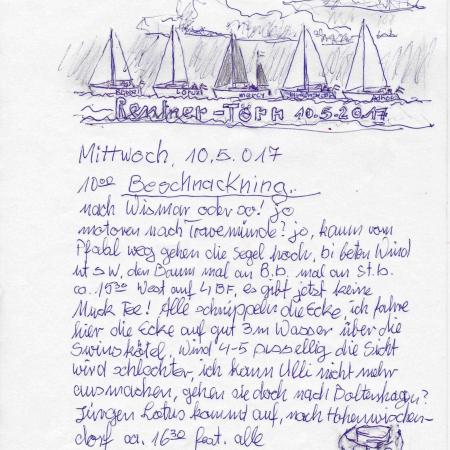 Lotus
Rentner-Törn 10.5.2017
Mittwoch, 10.5.017
10⁰⁰ Beschnackning.
nach Wismar oder so! jo
motoren nach Travemünde? jo, kaum vom
Pfahl weg gehen die Segel hoch, bi beten Wind
ut SW, den Baum mal an B.b. mal an St.b.
ca. 15³⁰ West auf 4 BF, es gibt jetzt keine
Muck Tee! Alle schnippeln die Ecke, ich fahre
hier die Ecke auf gut 3m Wasser über die
Swinskötel, Wind 4-5 pusselig die Sicht
wird schlechter, ich kann Ulli nicht mehr
ausmachen, gehen sie doch nach Boltenhagen?
Jürgen Lotus kommd auf, nach Hohenwischen-
dorf ca. 16³⁰ fest. alle